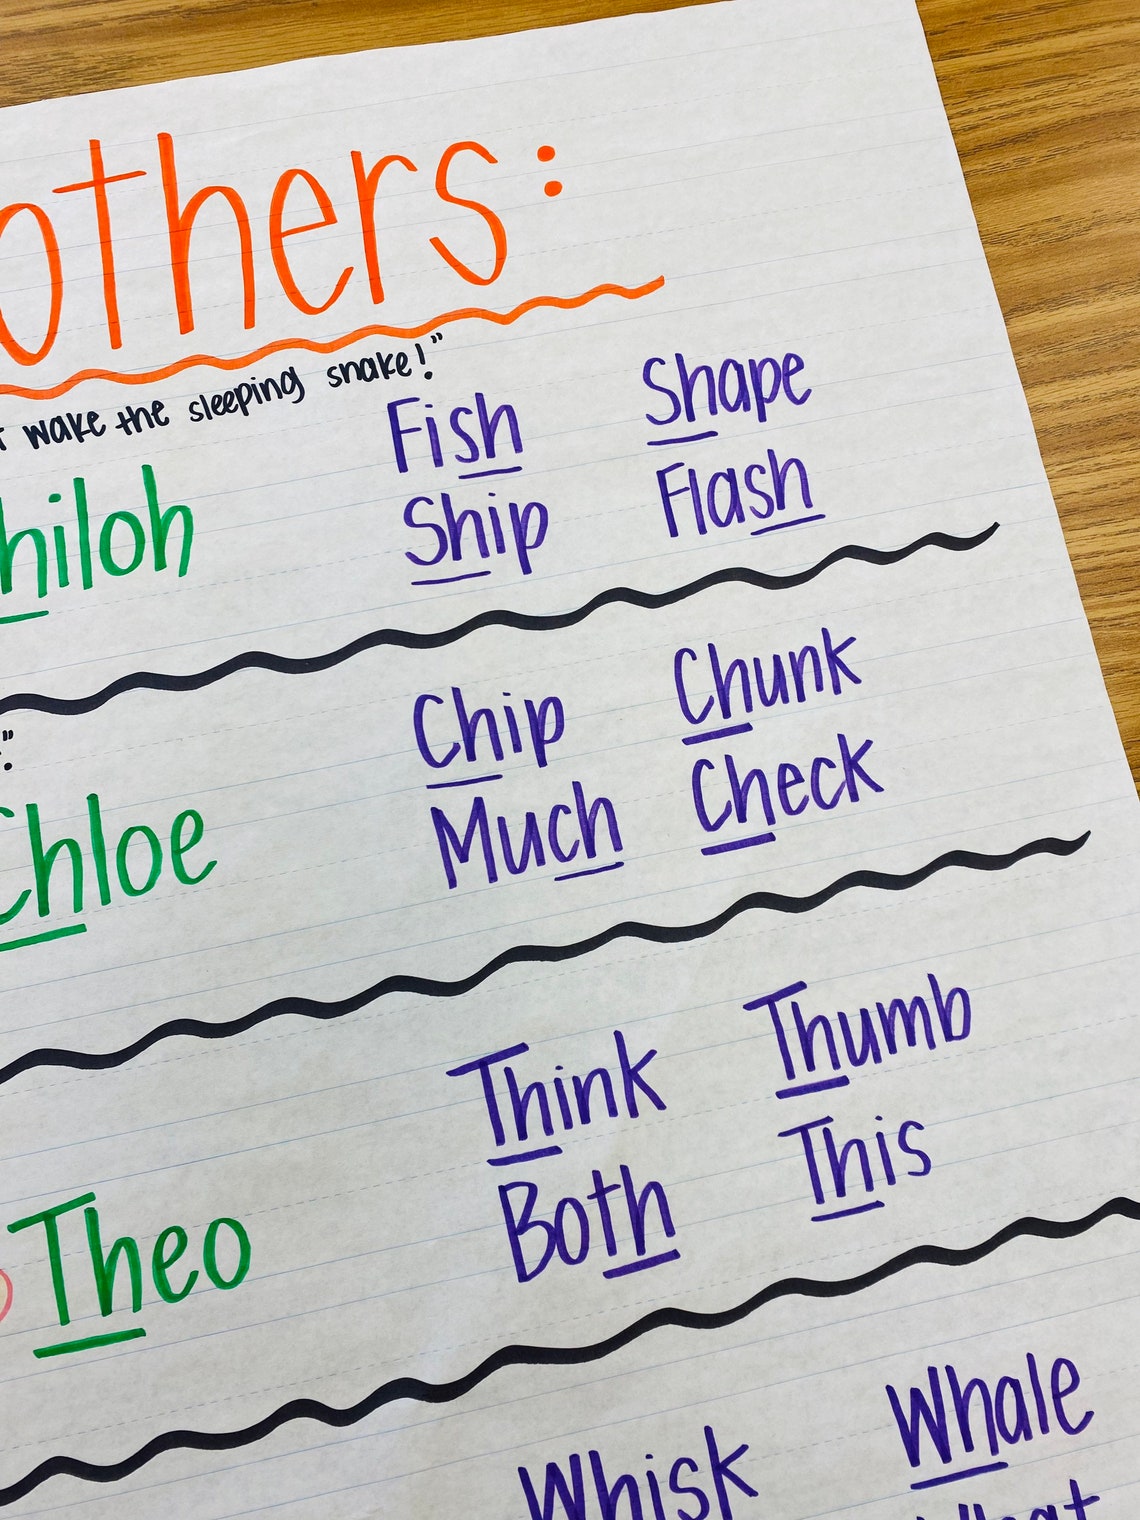 others:
wake the sleeping snake!"
Fish Shape
hiloh
Ship Flash
Chip Chunk
Chloe
Much Check
Think Thumb
Both This
Theo
Whisk Whale
What